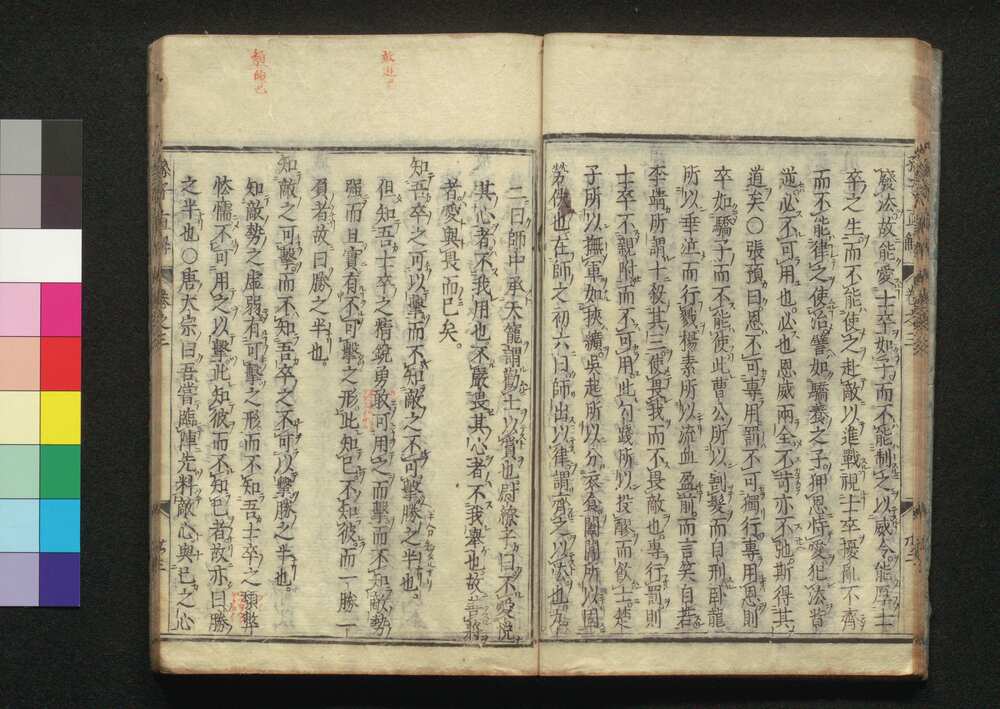 廢法故能愛士卒如子而不能制之以威令能厚士
卒之生而不能使之赴敵以進戰視士卒擾亂不齊
而不能律之使治譬如驕養之子狎恩恃愛犯法皆
逆必不可用也必也恩威兩全不苛亦不弛斯得其
道矣〇張預曰恩不可專用罰不可獨行專用恩則
卒如驕子而不能使此曹公所以割髮而自刑臥龍
所以垂泣而行戮楊素所以流血盈前而言笑自若
李靖所謂十殺其三使畏我而不畏敵也專行罰則
士卒不親附而不可用此勾踐所以投醪而飲士楚
子所以撫軍如挾纊吳起所以分衣食闔閭所以同
勞佚也在師之初六曰師出以律謂齊之以法也九
二曰師中承天寵謂勸士以賞也尉繚子曰不愛悅
其心者不我用也不嚴畏其心者不我舉也故善將
者愛與畏而已矣
知吾卒之可以擊而不知敵之不可擊勝之半也
但知吾士卒之精銳勇敢可用之而擊而不知敵勢
彊而且實有不可擊之形此知已不知彼而一勝一
負者故曰勝之半也
知敵之可擊而不知吾卒之不可以擊勝之半也
知敵勢之虛弱有可擊之形而不知吾士卒之頹弊
恠懦不可用之以擊此知彼而不知已者故亦曰勝
之半也〇唐太宗曰吾嘗臨陣先料敵心與已之心